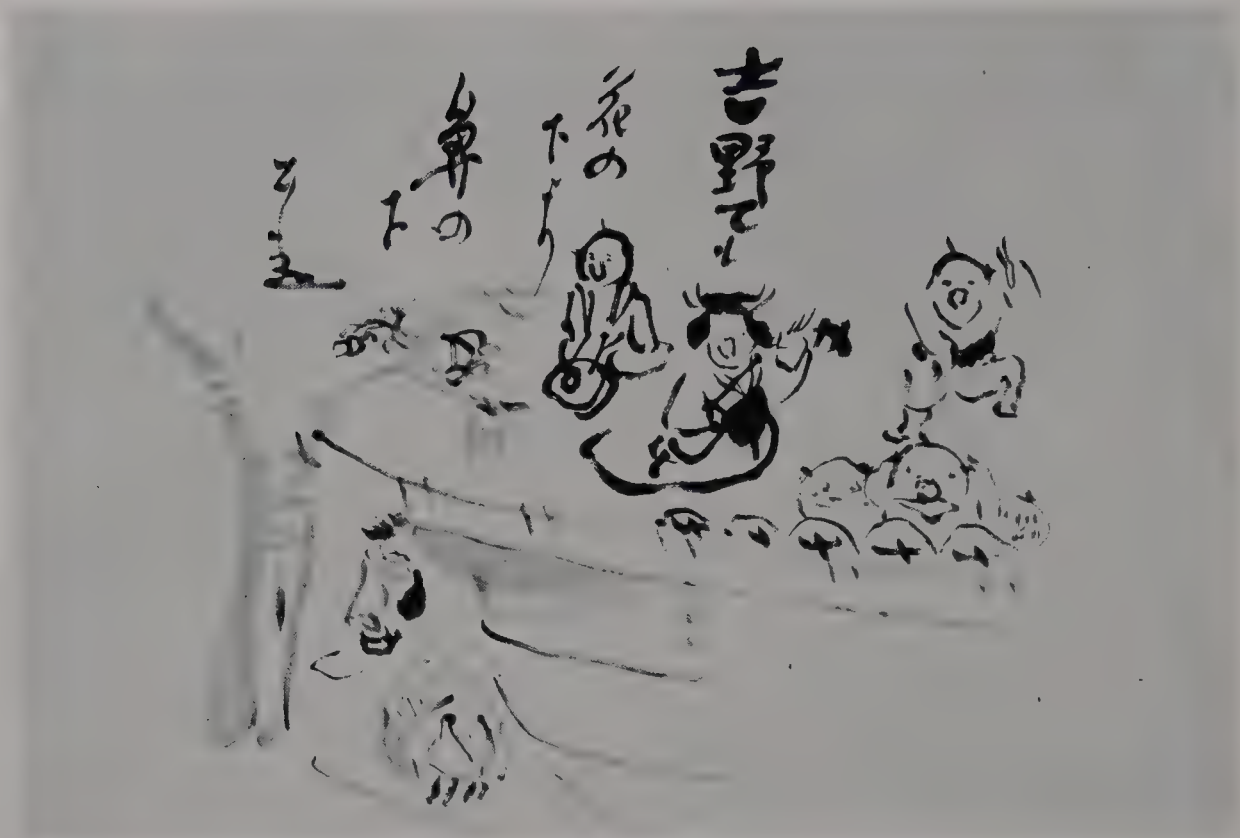 吉野ても
花の
下より
鼻の
下